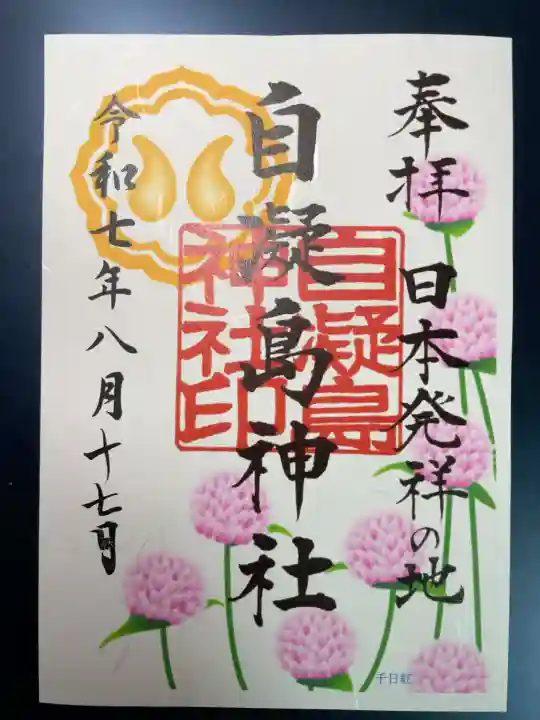 奉拝 日本発祥の地
自凝島神社
自凝島
神社印
令和七年八月十七日
千日紅